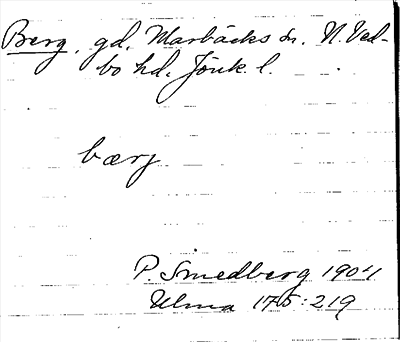 Berg, gd, Marbäcks sn. N. Ved-
bo hd. Jönk. l.
bærj
P. Smedberg 1904
Ulma 175:219